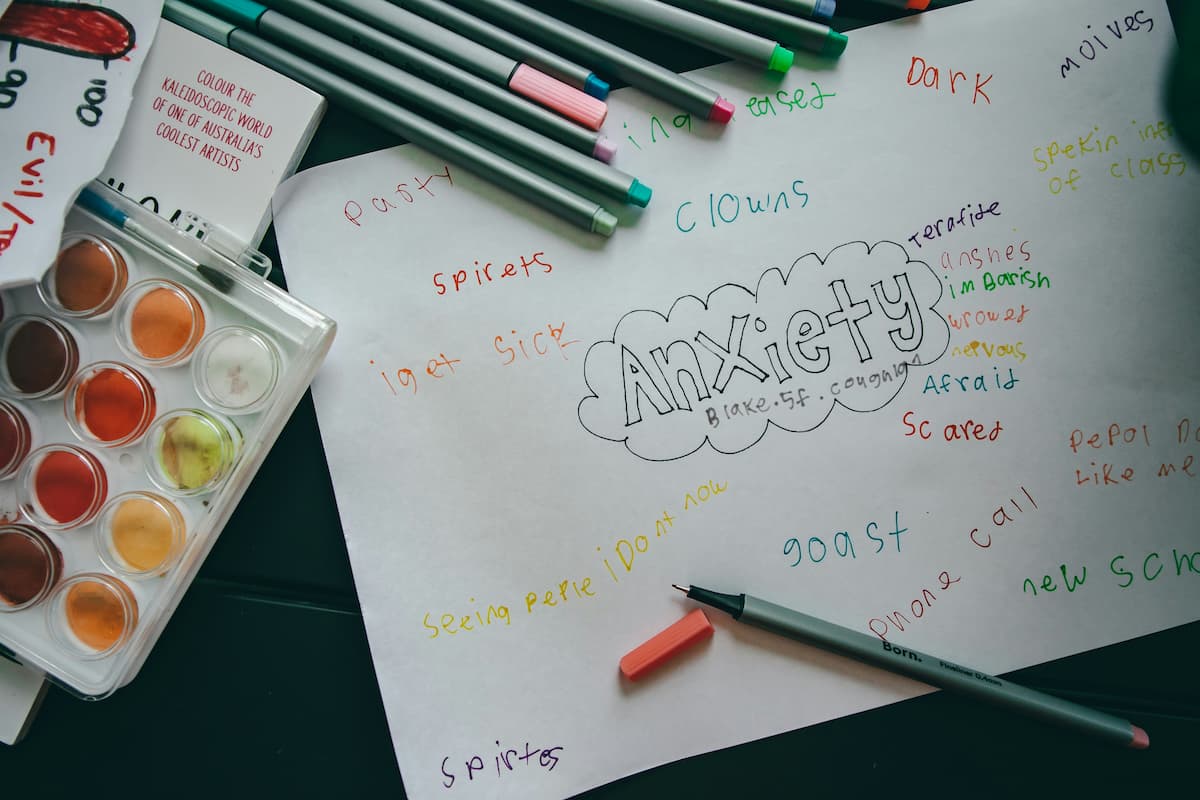 100
-90
Evil/
COLOUR THE
KALEIDOSCOPIC WORLD
OF ONE OF AUSTRALIA'S
COOLEST ARTISTS
moives
Dark
ing eases
party
Clowns
spekin
of class
spirets
terafide
anshes
imBarish
wrowes
nervous
Afraid
Scared
iget Sick
Anxiety
Blake.5f.coughlan
PePol
Like me
seeing peple i Dont now
goast
phone call
new
Born.
Fineliner 0.4mm
Spirtes